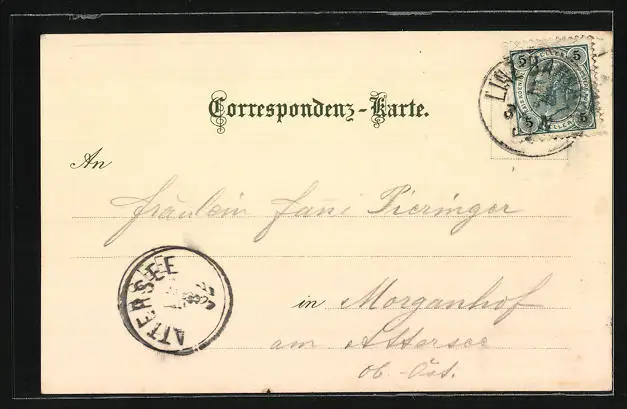 Correspondenz-Karte.
LINZ
5 5
5 5
An
Fräulein Fani Pieringer
in Morganhof
am Attersee
Ob. Öst.
ATTERSEE